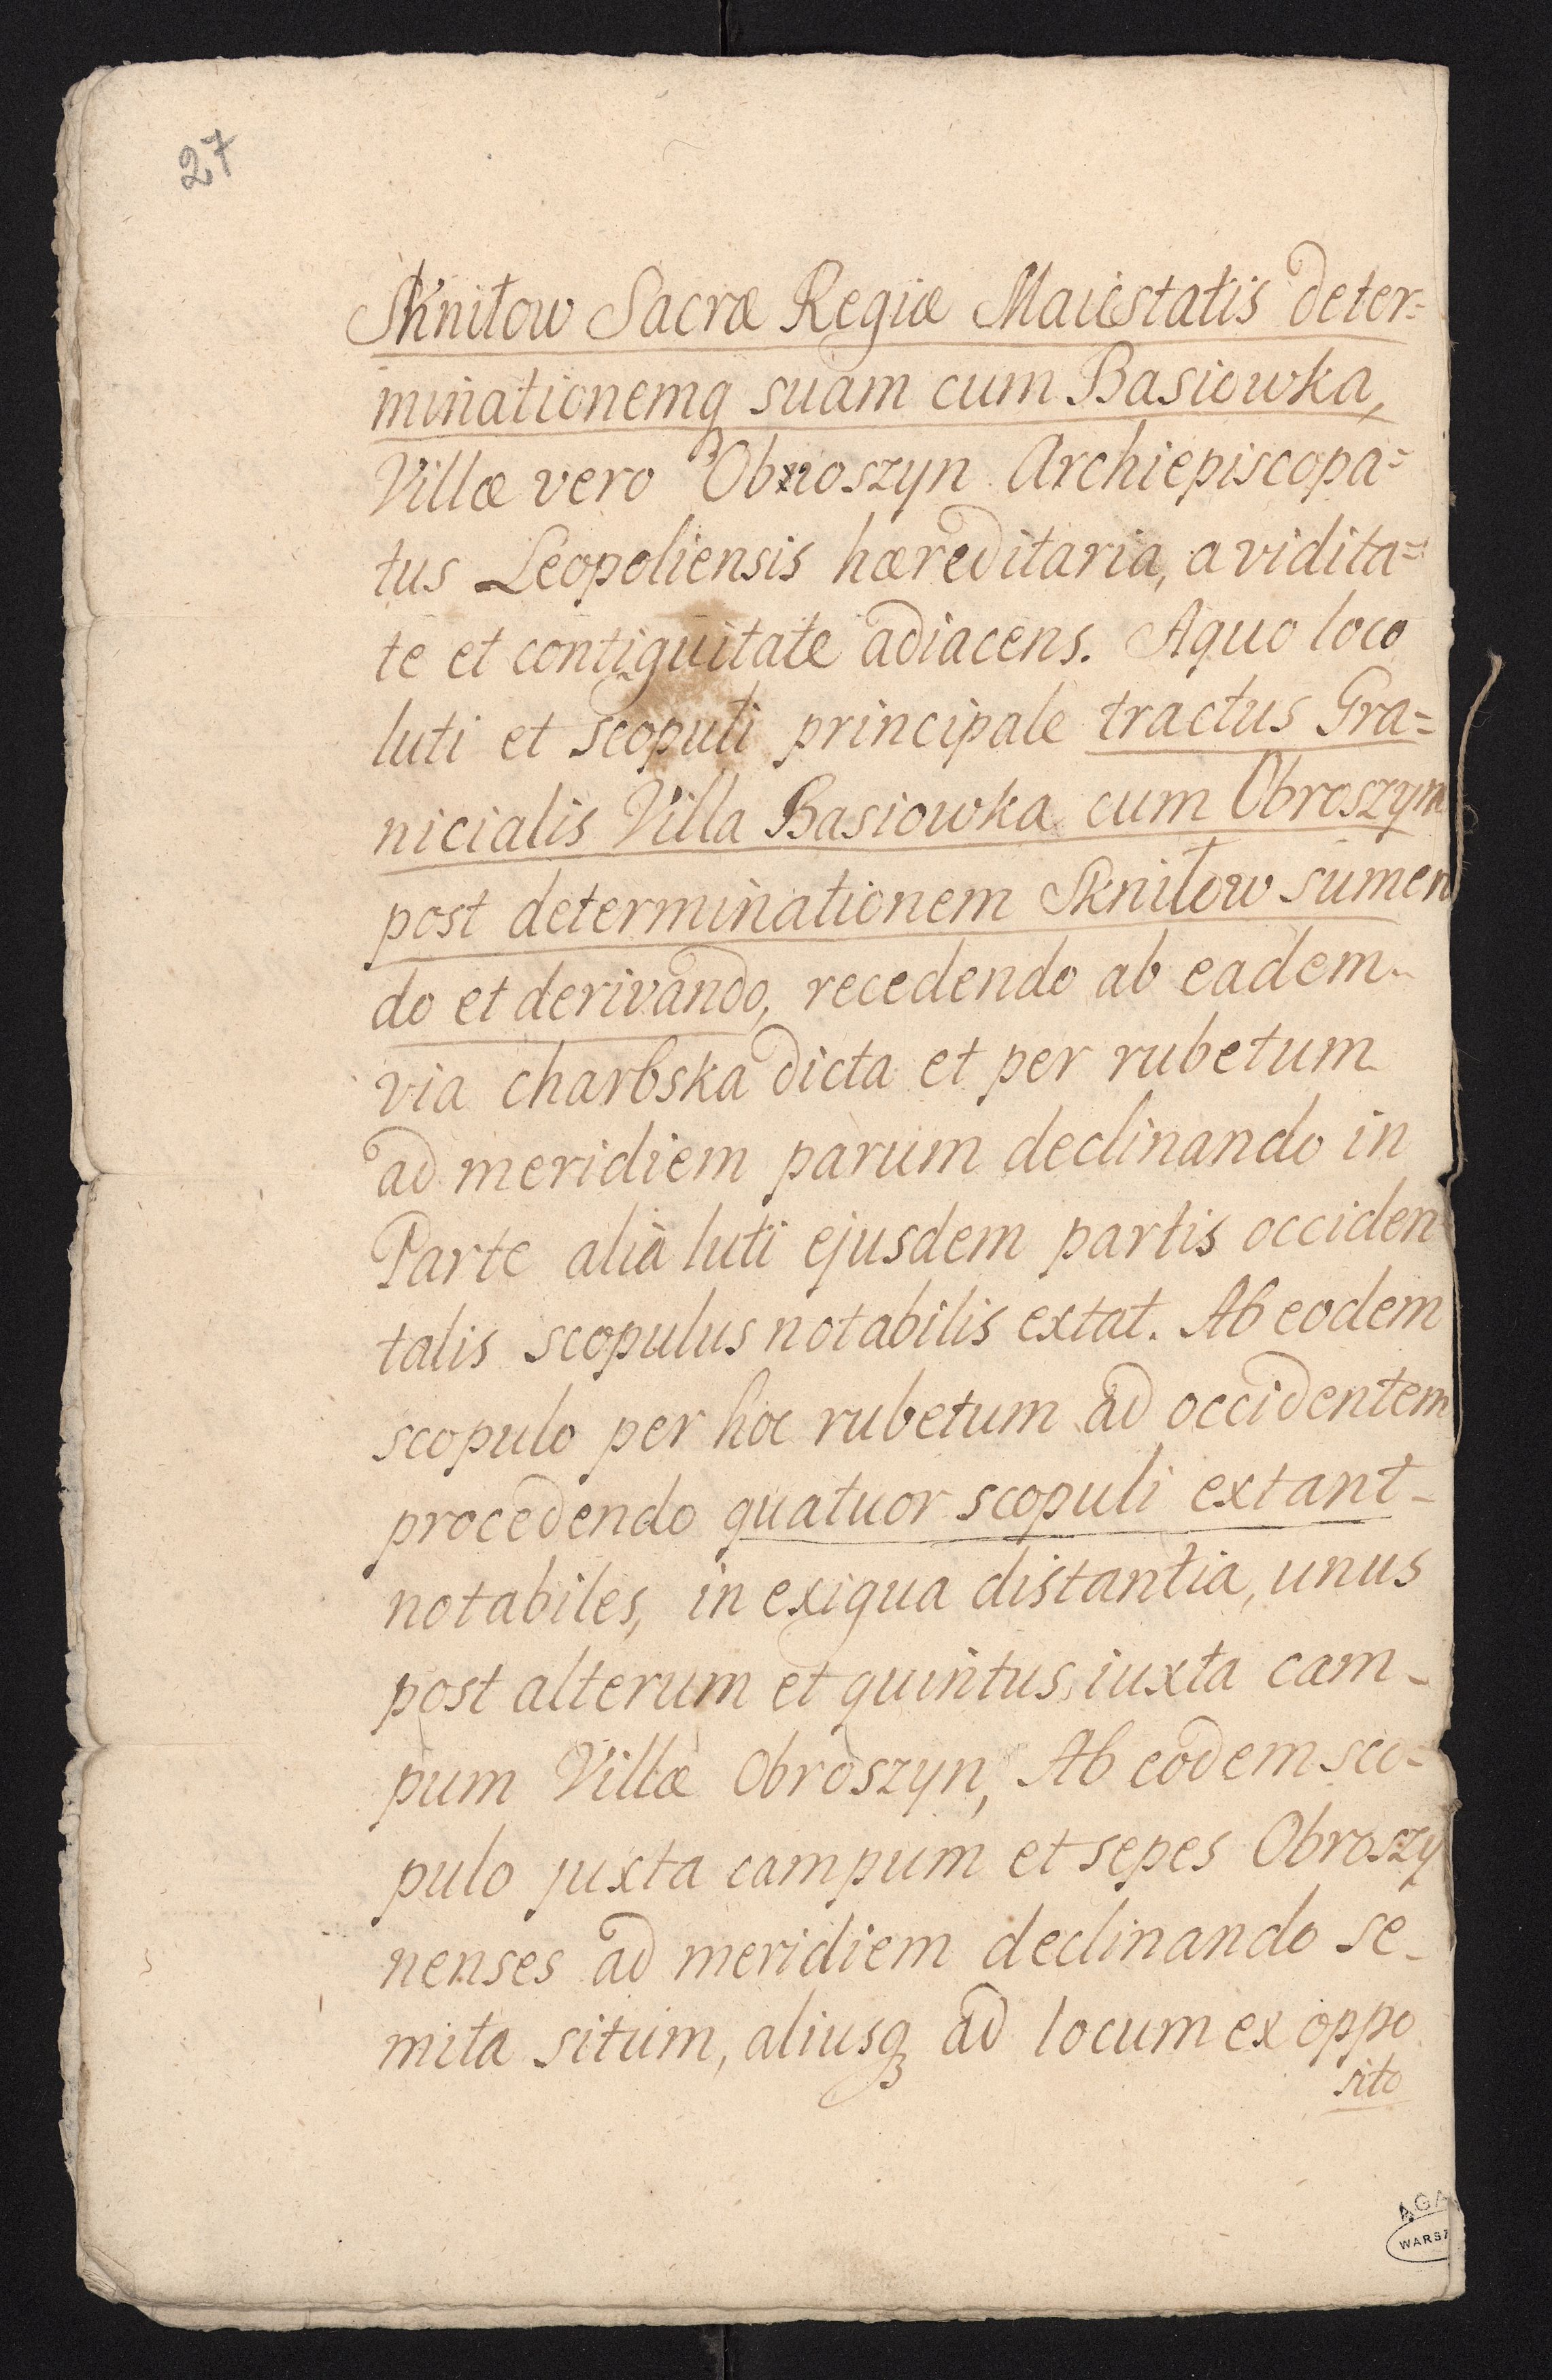 27
Skniłow Sacræ Regiæ Maiestatis deter=
minationemq suam cum Basiowka,
Villæ vero Obroszyn Archiepiscopa=
tus Leopoliensis hæreditaria, a vidita=
te et contiguitate adiacens. Aquo loco
luti et scopuli principale tractus Gra=
nicialis Villa Basiowka cum Obroszyn
post determinationem Skniłow sumen
do et derivando, recedendo ab eadem
via charbska dicta et per rubetum
ad meridiem parum declinando in
Parte alià luti ejusdem partis occiden
talis scopulus notabilis extat. Ab eodem
scopulo per hoc rubetum ad occidentem
procedendo quatuor scopuli extant
notabiles, in exigua distantia, unus
post alterum et quintus iuxta cam-
pum Villæ Obroszyn, Ab eodem sco-
pulo juxta campum et sepes Obroszy
nenses ad meridiem declinando se-
mita situm, aliusq ad locum ex oppo
sito
AGA
WARSZ